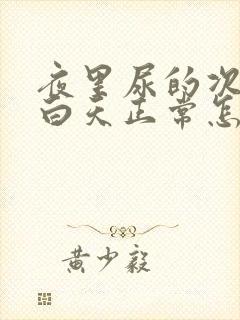 夜里尿的次
白天正常怎
黄少毅